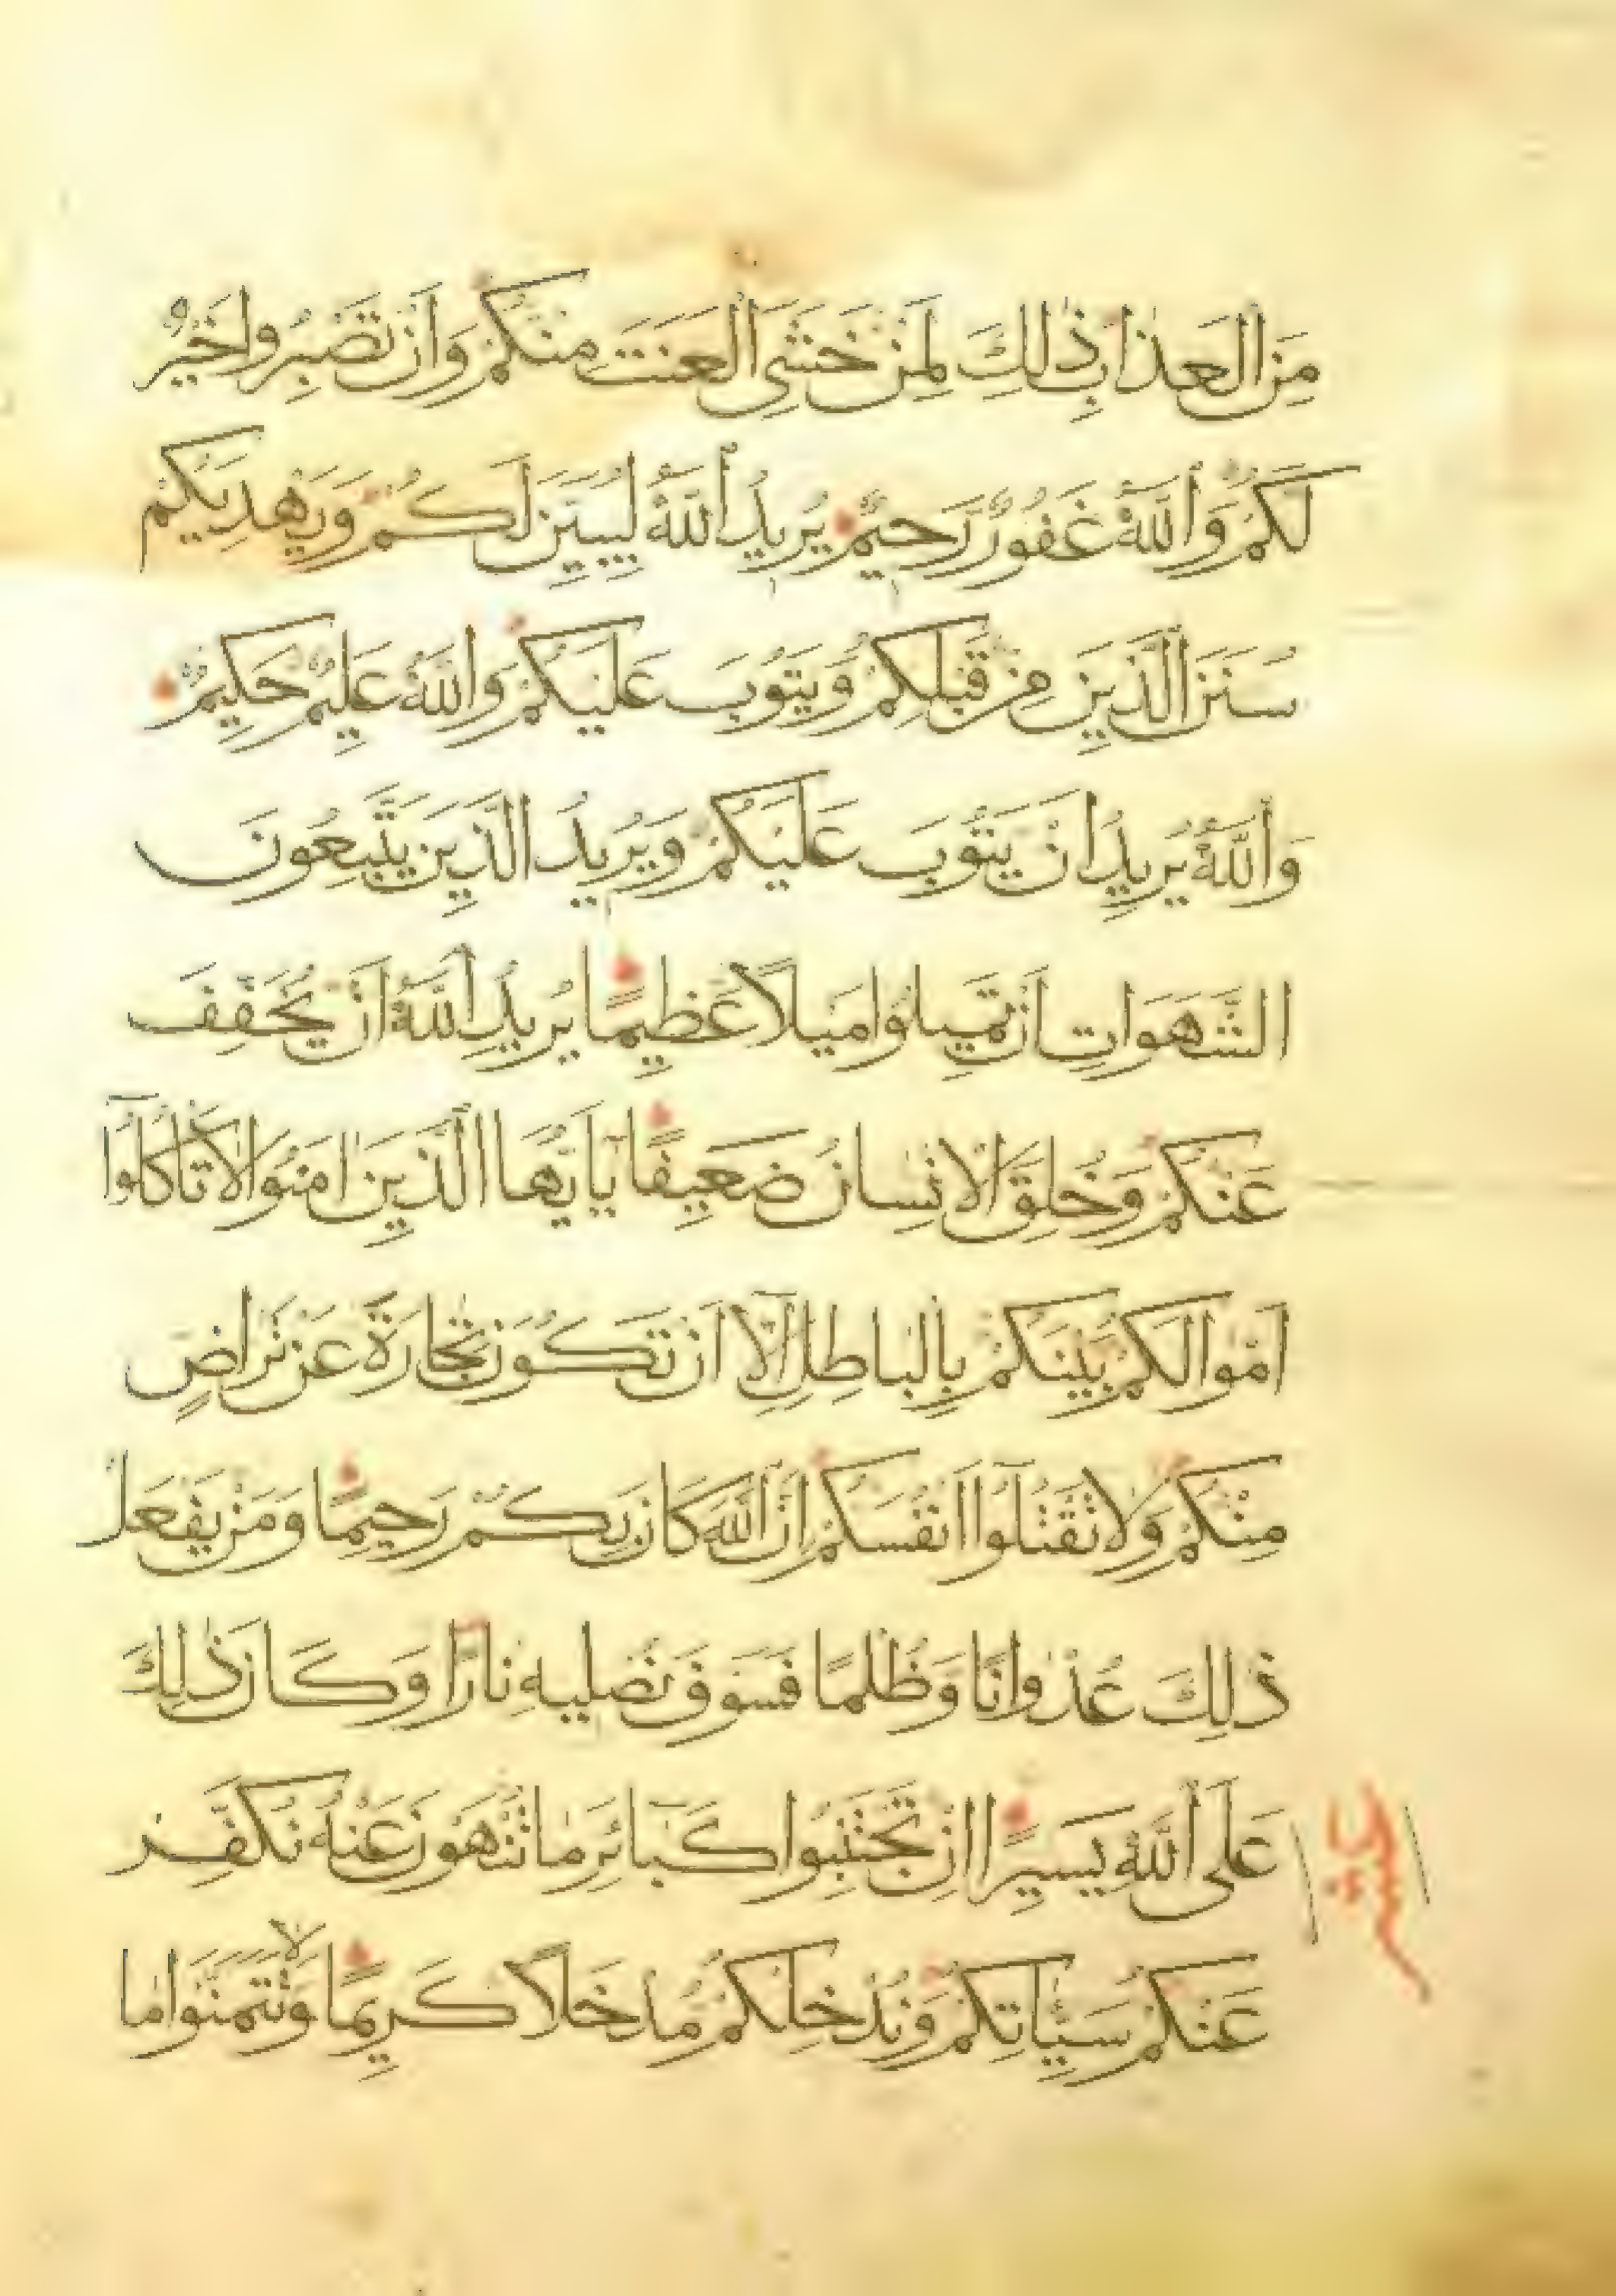 مِنَ الْعَذَابِ ذٰلِكَ لِمَنْ خَشِيَ الْعَنَتَ مِنْكُمْ وَاَنْ تَصْبِرُوا خَيْرٌ
لَكُمْ وَاللّٰهُ غَفُورٌ رَحِيمٌ يُرِيدُ اللّٰهُ لِيُبَيِّنَ لَكُمْ وَيَهْدِيَكُمْ
سُنَنَ الَّذِينَ مِنْ قَبْلِكُمْ وَيَتُوبَ عَلَيْكُمْ وَاللّٰهُ عَلِيمٌ حَكِيمٌ
وَاللّٰهُ يُرِيدُ اَنْ يَتُوبَ عَلَيْكُمْ وَيُرِيدُ الَّذِينَ يَتَّبِعُونَ
الشَّهَوَاتِ اَنْ تَمِيلُوا مَيْلًا عَظِيمًا يُرِيدُ اللّٰهُ اَنْ يُخَفِّفَ
عَنْكُمْ وَخُلِقَ الْاِنْسَانُ ضَعِيفًا يَا اَيُّهَا الَّذِينَ اٰمَنُوا لَا تَاْكُلُوا
اَمْوَالَكُمْ بَيْنَكُمْ بِالْبَاطِلِ اِلَّا اَنْ تَكُونَ تِجَارَةً عَنْ تَرَاضٍ
مِنْكُمْ وَلَا تَقْتُلُوا اَنْفُسَكُمْ اِنَّ اللّٰهَ كَانَ بِكُمْ رَحِيمًا وَمَنْ يَفْعَلْ
ذٰلِكَ عُدْوَانًا وَظُلْمًا فَسَوْفَ نُصْلِيهِ نَارًا وَكَانَ ذٰلِكَ
عَلَى اللّٰهِ يَسِيرًا اِنْ تَجْتَنِبُوا كَبَائِرَ مَا تُنْهَوْنَ عَنْهُ نُكَفِّرْ
عَنْكُمْ سَيِّاٰتِكُمْ وَنُدْخِلْكُمْ مُدْخَلًا كَرِيمًا وَلَا تَتَمَنَّوْا مَا